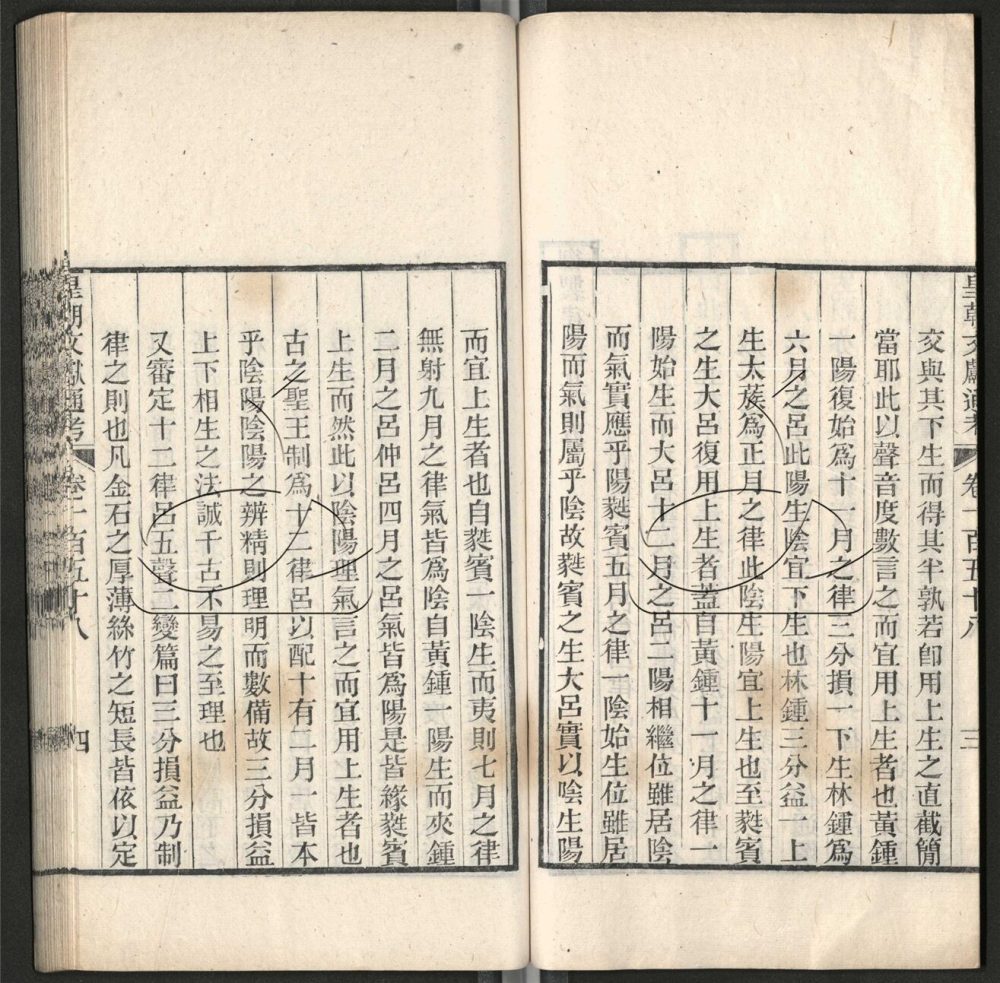 皇朝文獻通考 卷一百五十八 三
交與其下生而得其半孰若卽用上生之直截簡
當耶此以聲音度數言之而宜用上生者也黃鍾
一陽復始爲十一月之律三分損一下生林鍾爲
六月之呂此陽生陰宜下生也林鍾三分益一上
生太蔟爲正月之律此陰生陽宜上生也至蕤賓
之生大呂復用上生者蓋自黃鍾十一月之律一
陽始生而大呂十二月之呂二陽相繼位雖居陰
而氣實應乎陽蕤賓五月之律一陰始生位雖居
陽而氣則屬乎陰故蕤賓之生大呂實以陰生陽
而宜上生者也自蕤賓一陰生而夷則七月之律
無射九月之律氣皆爲陰自黃鍾一陽生而夾鍾
二月之呂仲呂四月之呂氣皆爲陽是皆緣蕤賓
上生而然此以陰陽理氣言之而宜用上生者也
古之聖王制爲十二律呂以配十有二月一皆本
乎陰陽陰陽之辨精則理明而數備故三分損益
上下相生之法誠千古不易之至理也
又審定十二律呂五聲二變篇曰三分損益乃制
律之則也凡金石之厚薄絲竹之短長皆依以定
皇朝文獻通考 卷一百五十八 四